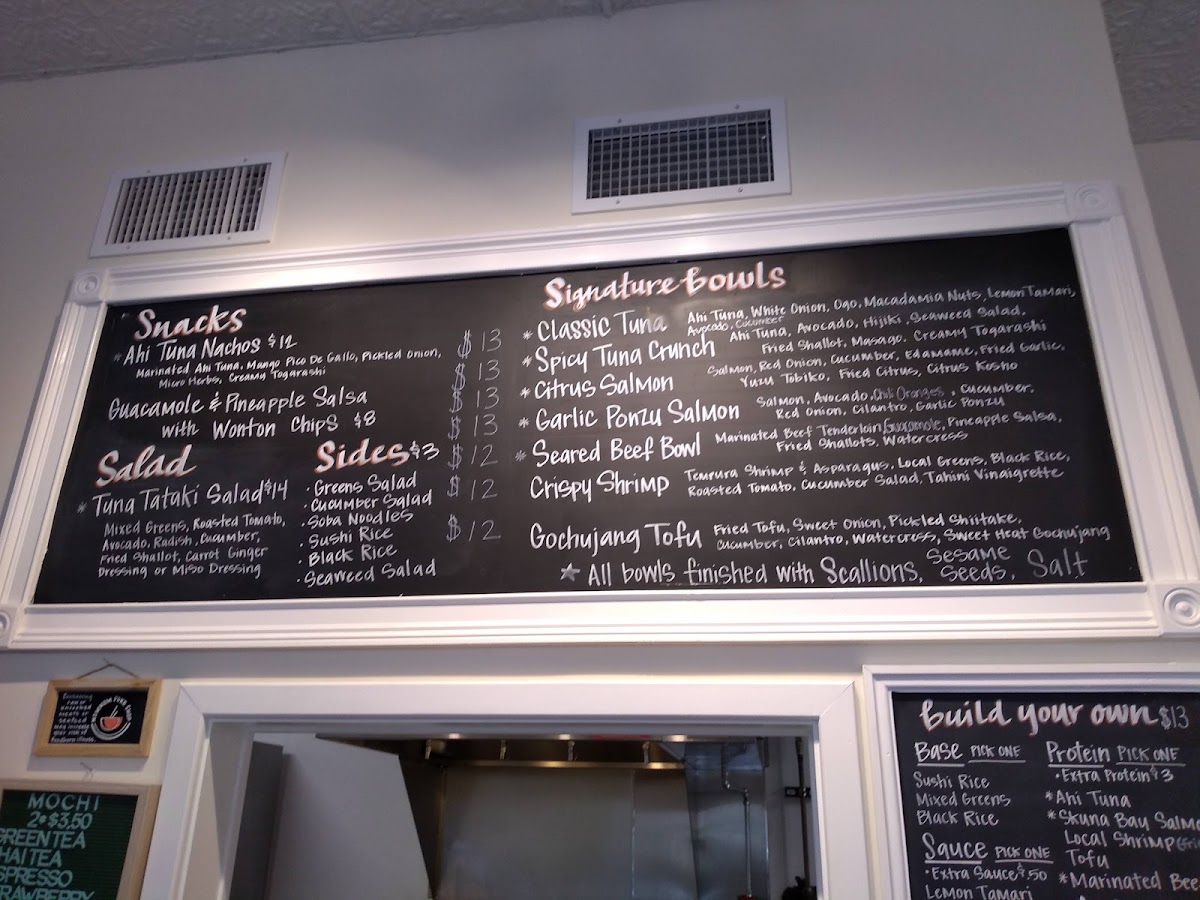 Snacks
* Ahi Tuna Nachos $12
Marinated Ahi Tuna, Mango Pico De Gallo, Pickled Onion,
Micro Herbs, Creamy Togarashi
Guacamole & Pineapple Salsa
with Wonton Chips $8
Salad
* Tuna Tataki Salad $14
Mixed Greens, Roasted Tomato,
Avocado, Radish, Cucumber,
Fried Shallot, Carrot Ginger
Dressing or Miso Dressing
Sides $3
· Greens Salad
· Cucumber Salad
· Soba Noodles
· Sushi Rice
· Black Rice
· Seaweed Salad
Signature Bowls
$13 * Classic Tuna Ahi Tuna, White Onion, Ogo, Macadamia Nuts, Lemon Tamari,
Avocado, Cucumber
$13 * Spicy Tuna Crunch Ahi Tuna, Avocado, Hijiki, Seaweed Salad,
Fried Shallot, Masago, Creamy Togarashi
$13 * Citrus Salmon Salmon, Red Onion, Cucumber, Edamame, Fried Garlic,
Yuzu Tobiko, Fried Citrus, Citrus Kosho
$13 * Garlic Ponzu Salmon Salmon, Avocado, Chili Oranges, Cucumber,
Red Onion, Cilantro, Garlic Ponzu
$12 * Seared Beef Bowl Marinated Beef Tenderloin, Guacamole, Pineapple Salsa,
Fried Shallots, Watercress
$12 Crispy Shrimp Tempura Shrimp & Asparagus, Local Greens, Black Rice,
Roasted Tomato, Cucumber Salad, Tahini Vinaigrette
$12 Gochujang Tofu Fried Tofu, Sweet Onion, Pickled Shiitake,
Cucumber, Cilantro, Watercress, Sweet Heat Gochujang
* All bowls finished with Scallions, Sesame Seeds, Salt
Consuming
raw or
seafood
may increase
your risk of
foodborne illness.
MOCHI
2 • $3.50
GREEN TEA
HAI TEA
SPRESSO
RAWBERRY
Build your own $13
Base PICK ONE
Sushi Rice
Mixed Greens
Black Rice
Sauce PICK ONE
· Extra Sauce $.50
Lemon Tamari
Protein PICK ONE
· Extra Protein $3
* Ahi Tuna
* Skuna Bay Salmo
Local Shrimp
Tofu
* Marinated Bee